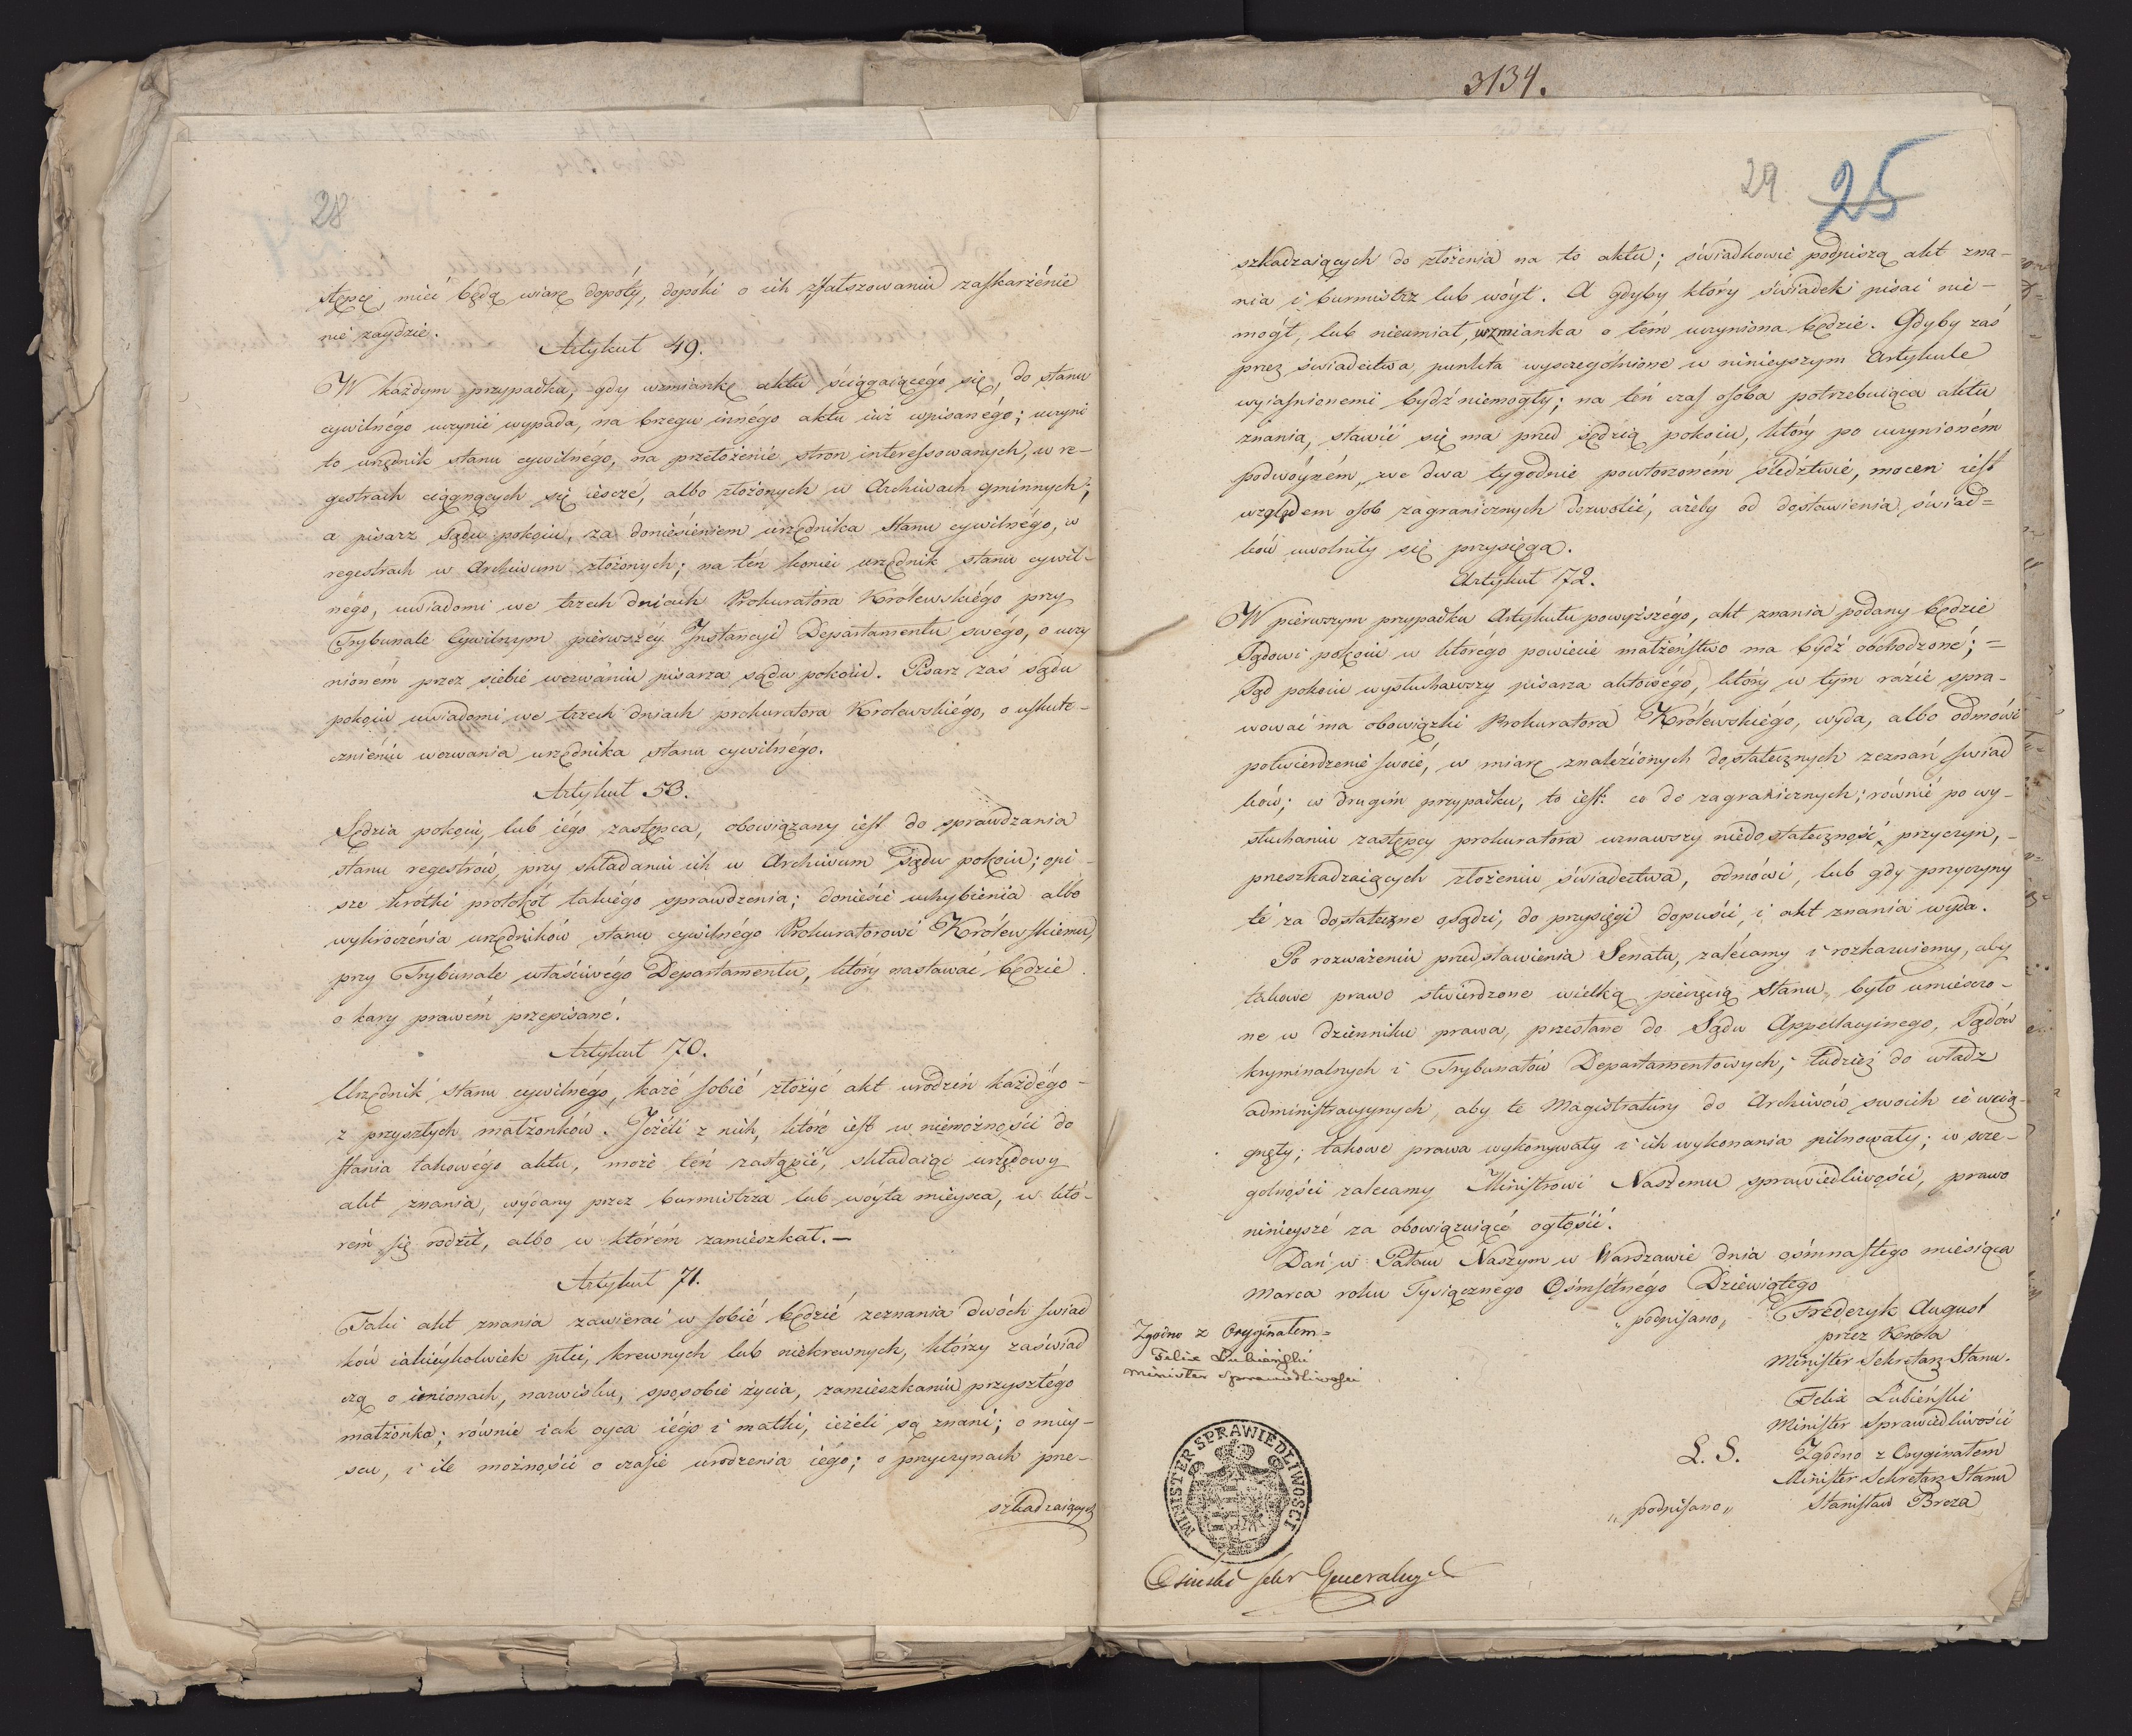 28
stępcę, mieć będą wiarę dopóty, dopóki o ich sfałszowaniu zaskarżénie
nié zaydzie.
Artykuł 49.
W każdym przypadku, gdy wzmiankę aktu ściągaiącégo się, do stanu
cywilnégo uczynić wypada, na brzegu innégo aktu iuż wpisanégo; uczyni
to urzędnik stanu cywilnégo, na przełożénié stron interessowanych, w re-
gestrach ciągnących się iescze, albo złożonych w Archiwach gminnych;
a pisarz Sądu pokoiu, za doniesieniem urzędnika Stanu cywilnégo, w
regestrach w Archiwum złożonych; na tén koniec urzędnik stanu cywil-
négo, uwiadomi we trzech dniach Prokuratora Królewskiégo przy
Trybunale Cywilnym pierwszéy Instancyi Departamentu swégo, o uczy
nioném przez siebie wezwaniu pisarza sądu pokoiu. Pisarz zaś sądu
pokoiu uwiadomi we trzech dniach prokuratora Krolewskiégo, o uskute-
cznieniu wezwania urzędnika stanu cywilnégo.
Artykuł 53.
Sędzia pokoiu, lub iégo zastępca, obowiązany iest do sprawdzania
stanu regestrów, przy składaniu ich w Archiwum Sądu pokoiu; opi-
sze krótki protokół takiégo sprawdzenia; doniesie uchybienia albo
wykroczénia urzędników stanu cywilnégo Prokuratorowi Królewskiemu,
przy Trybunale właściwégo Departamentu, który nastawać będzie
o kary prawém przepisané.
Artykuł 70.
Urzędnik stanu cywilnégo, każé sobié złożyć akt urodzeń każdégo-
z przyszłych małżonków. Jeżéli z nich, któré iest w niemożności do
stania takowégo aktu, możé tén zastąpić, składaiąc urzędowy
akt znania, wydany przez burmistrza lub wóyta mieysca, w któ-
rém się rodził, albo w którém zamieszkał. —
Artykuł 71.
Taki akt znania zawierać w sobié będzié zeznania dwóch swiad
ków iakieykolwiek płci, krewnych lub niekrewnych, którzy zaświad
czą o imionach, nazwisku, sposobie życia, zamieszkaniu przyszłégo
małżonka; równie iak oyca iégo i matki, ieżeli są znani; o miey-
scu, i ile możności o czasie urodzenia iégo; o przyczynach prze-
szkadzaiących
3134.
29 25
szkadzaiących do złożenia na to aktu; świadkowie podpiszą akt zna-
nia i burmistrz lub wóyt. A gdyby który świadek pisać nie-
mógł, lub nieumiał, wzmianka o tém uczyniona będzie. Gdyby zaś
przez świadectwa punkta wyszczególnione w ninieyszym Artykule
wyiasnionemi bydź niemogły; na tén czas osoba potrzebuiąca aktu
znania, stawić się ma przed sędzią pokoiu, który po uczynioném
podwóyném, we dwa tygodnie powtorzoném śledztwie, mocen iest
względem osob zagranicznych dozwolić, ażeby od dostawienia świad=
ków uwolniły się przysięgą.
Artykuł 172.
W pierwszym przypadku Artykułu powyższégo, akt znania podany będzie
Sądowi pokoiu w którégo powiecie małżeństwo ma bydź obchodzoné; =
Sąd pokoiu wysłuchawszy pisarza aktowégo, który w tym razie spra-
wować ma obowiązki Prokuratora Królewskiégo, wyda, albo odmówi
potwierdzenie swoié, w miarę znalezionych dostatecznych zeznań swiad
ków; w drugim przypadku, to iest: co do zagranicznych; równié po wy-
słuchaniu zastępcy prokuratora uznawszy niedostateczność przyczyn, -
przeszkadzaiących złożeniu świadectwa, odmówi, lub gdy przyczyny
té za dostateczne osądzi, do przysięgi dopuści, i akt znania wyda.
Po rozważeniu przedstawienia Senatu, zalecamy i rozkazuiemy, aby
takowe prawo stwierdzone wielką pieczęcią Stanu, było umiesczo-
ne w dzienniku prawa, przesłane do Sądu Appellacyinego, Sądów
kryminalnych i Trybunałów Departamentowych; tudzież do władz
administracyynych, aby te Magistratury do Archiwów swoich ie wcią-
gnęły; takowe prawa wykonywały i ich wykonania pilnowały; w scze-
golności zalecamy Ministrowi Naszemu sprawiedliwości, prawo
ninieyszé za obowiązuiącé ogłosić.
Dan w Pałacu Naszym w Warszawie dnia osmnastego miésiąca
Marca roku Tysiącznego Ośmsétnégo Dziewiątego
„podpisano„ Frederyk August
przez Krola
Minister Sekretarz Stanu.
Zgodno z Oryginałem=
Felix Łubieński
Minister Sprawiedliwości
Felix Łubieński
Minister Sprawiedliwości
L. S. Zgodno z Oryginałem
Minister Sekretarz Stanu
„podpisano„ Stanisław Breza
MINISTER SPRAWIEDLIWOSCI
Osiński sekr Generalny